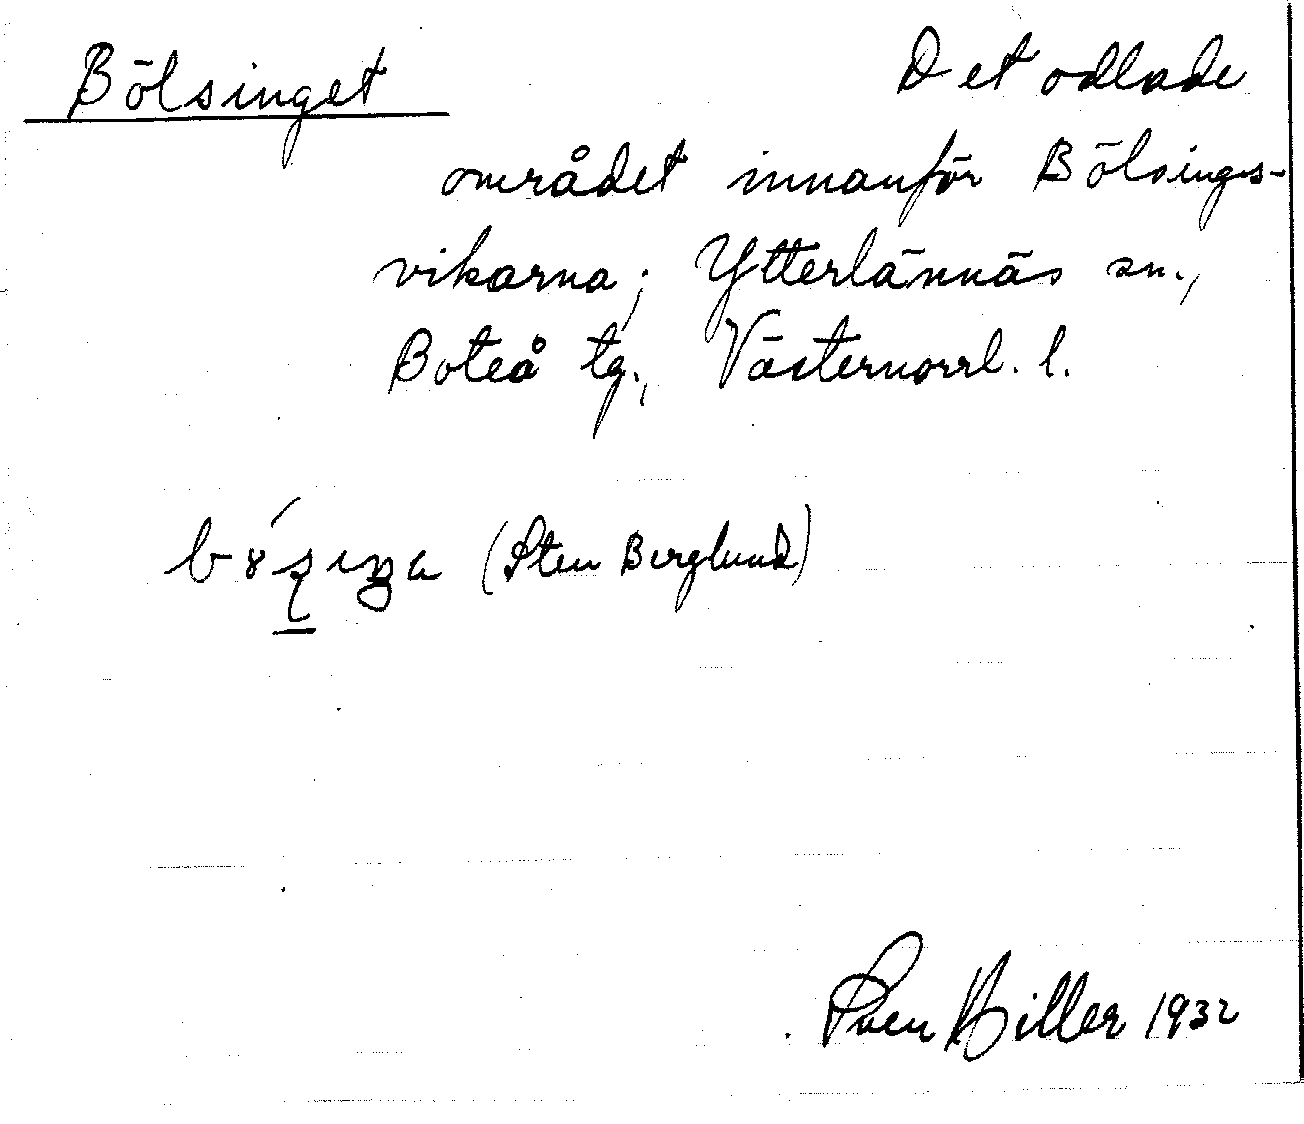 Bölsinget Det odlade
området innanför Bölsings-
vikarna; Ytterlännäs sn.,
Boteå tg., Västernorrl. l.
(Sten Berglund)
Sven Hiller 1932